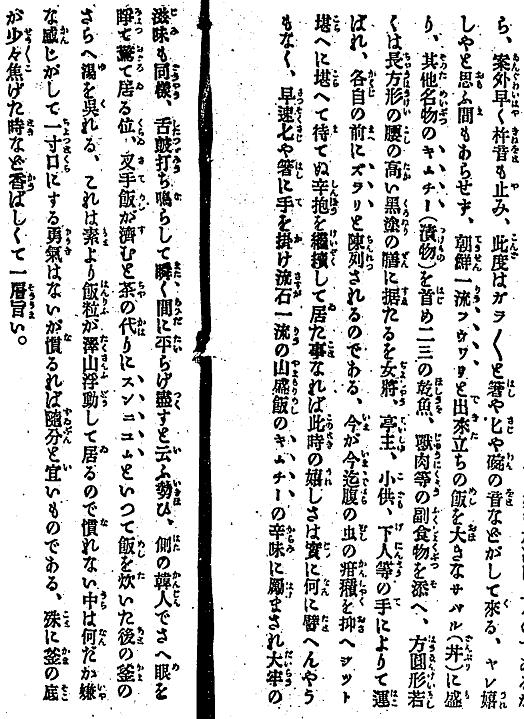 ら、案外早く杵音も止み、此度はガラ〱と箸や匕や碗の音などがして來る、ヤレ嬉
しやと思ふ間もあらせず、朝鮮一流フウワリと出來立ちの飯を大きなサバル(丼)に盛
り、其他名物のキムチー(漬物)を首め二三の乾魚、獸肉等の副食物を添へ、方圓形若
くは長方形の腰の高い黒塗の膳に据たるを女將、亭主、小供、下人等の手によりて運
ばれ、各自の前にズラリと陳列されるのである、今が今迄腹の虫の疳癪を抑へヂツト
堪へに堪へて待てぬ辛抱を繼續して居た事なれば此時の嬉しさは實に何に譬へんやう
もなく、早速匕や箸に手を掛け流石一流の山盛飯のキムチーの辛味に勵まされ大牢の
滋味も同様、舌鼓打ち鳴らして瞬く間に平らげ盡すと云ふ勢ひ、側の韓人でさへ眼を
睜て驚て居る位、叉手飯が濟むと茶の代りにスンニユムといつて飯を炊いた後の釜の
さらへ湯を呉れる、これは素より飯粒が澤山浮動して居るので慣れない中は何だか嫌
な感じがして一寸口にする勇氣はないが慣るれば隨分と宜いものである、殊に釜の底
が少々焦げた時など香ばしくて一層旨い。